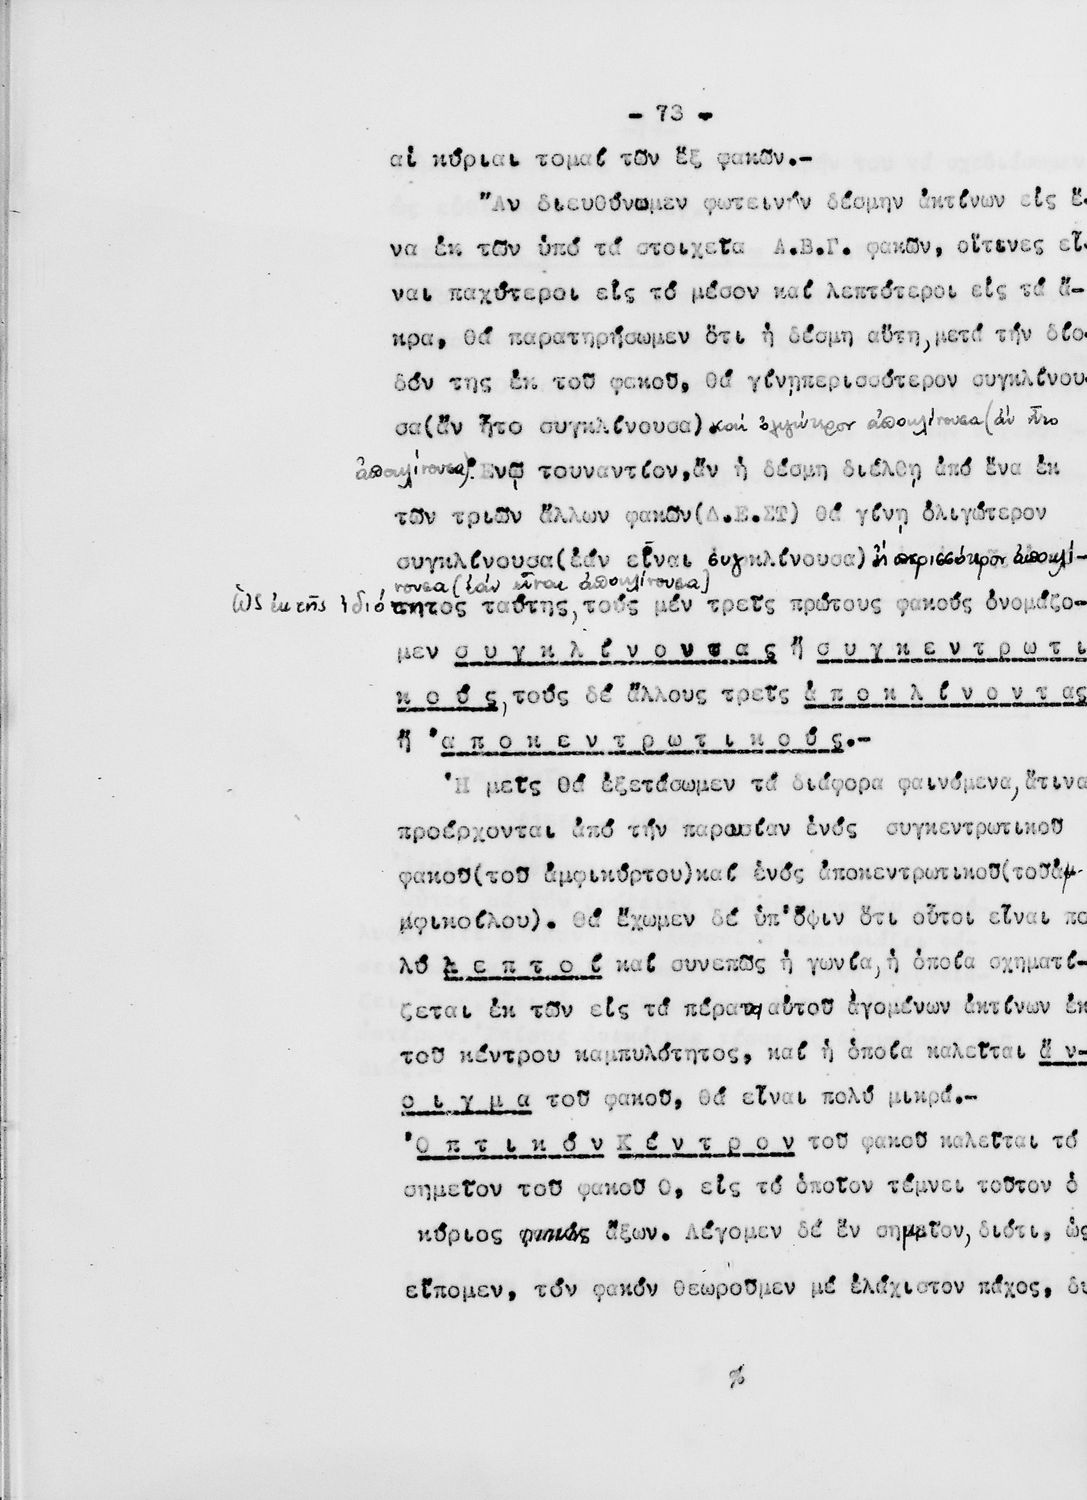 - 73 -
αἱ κύριαι τομαί τῶν ἕξ φακῶν.-
"Αν διευθύνωμεν φωτεινήν δέσμην ἀκτίνων εἰς ἕ-
να ἐκ τῶν ὑπό τά στοιχεῖα Α.Β.Γ. φακῶν, οἵτινες εἶ-
ναι παχύτεροι εἰς τό μέσον καί λεπτότεροι εἰς τά ἄ-
κρα, θά παρατηρήσωμεν ὅτι ἡ δέσμη αὕτη, μετά τήν δίο-
δόν της ἐκ τοῦ φακοῦ, θά γίνῃπερισσότερον συγκλίνου-
σα(ἄν ἦτο συγκλίνουσα) καί ὀλιγώτερον ἀποκλίνουσα (ἄν ἦτο
ἀποκλίνουσα). Ενῷ τουναντίον, ἄν ἡ δέσμη διέλθῃ ἀπό ἕνα ἐκ
τῶν τριῶν ἄλλων φακῶν(Δ.Ε.ΣΤ) θά γίνῃ ὀλιγώτερον
συγκλίνουσα(ἐάν εἶναι συγκλίνουσα) ἤ περισσότερον ἀποκλί-
νουσα (ἐάν εἶναι ἀποκλίνουσα)
Ὡς ἐκ τῆς ἰδιότητος ταύτης, τούς μέν τρεῖς πρώτους φακούς ὀνομάζο-
μεν σ υ γ κ λ ί ν ο ν τ α ς ἤ σ υ γ κ ε ν τ ρ ω τ ι
κ ο ύ ς, τούς δέ ἄλλους τρεῖς ἀ π ο κ λ ί ν ο ν τ α ς
ἤ 'α π ο κ ε ν τ ρ ω τ ι κ ο ύ ς.-
'Η μεῖς θά ἐξετάσωμεν τά διάφορα φαινόμενα, ἅτινα
προέρχονται ἀπό τήν παρουσίαν ἑνός συγκεντρωτικοῦ
φακοῦ(τοῦ ἀμφικύρτου)καί ἑνός ἀποκεντρωτικοῦ(τοῦἀμ-
μφικοίλου). Θά ἔχωμεν δέ ὑπ'ὄψιν ὅτι οὗτοι εἶναι πο
λύ λ ε π τ ο ί καί συνεπῶς ἡ γωνία, ἡ ὁποία σχηματί-
ζεται ἐκ τῶν εἰς τά πέρατα αὐτοῦ ἀγομένων ἀκτίνων ἐκ
τοῦ κέντρου καμπυλότητος, καί ἡ ὁποία καλεῖται ἄ ν-
ο ι γ μ α τοῦ φακοῦ, θά εἶναι πολύ μικρά.-
'Ο π τ ι κ ό ν Κ έ ν τ ρ ο ν τοῦ φακοῦ καλεῖται τό
σημεῖον τοῦ φακοῦ Ο, εἰς τό ὁποῖον τέμνει τοῦτον ὁ
κύριος ἄξων. Λέγομεν δέ ἕν σημεῖον, διότι, ὡς
εἴπομεν, τόν φακόν θεωροῦμεν μέ ἐλάχιστον πάχος, δι